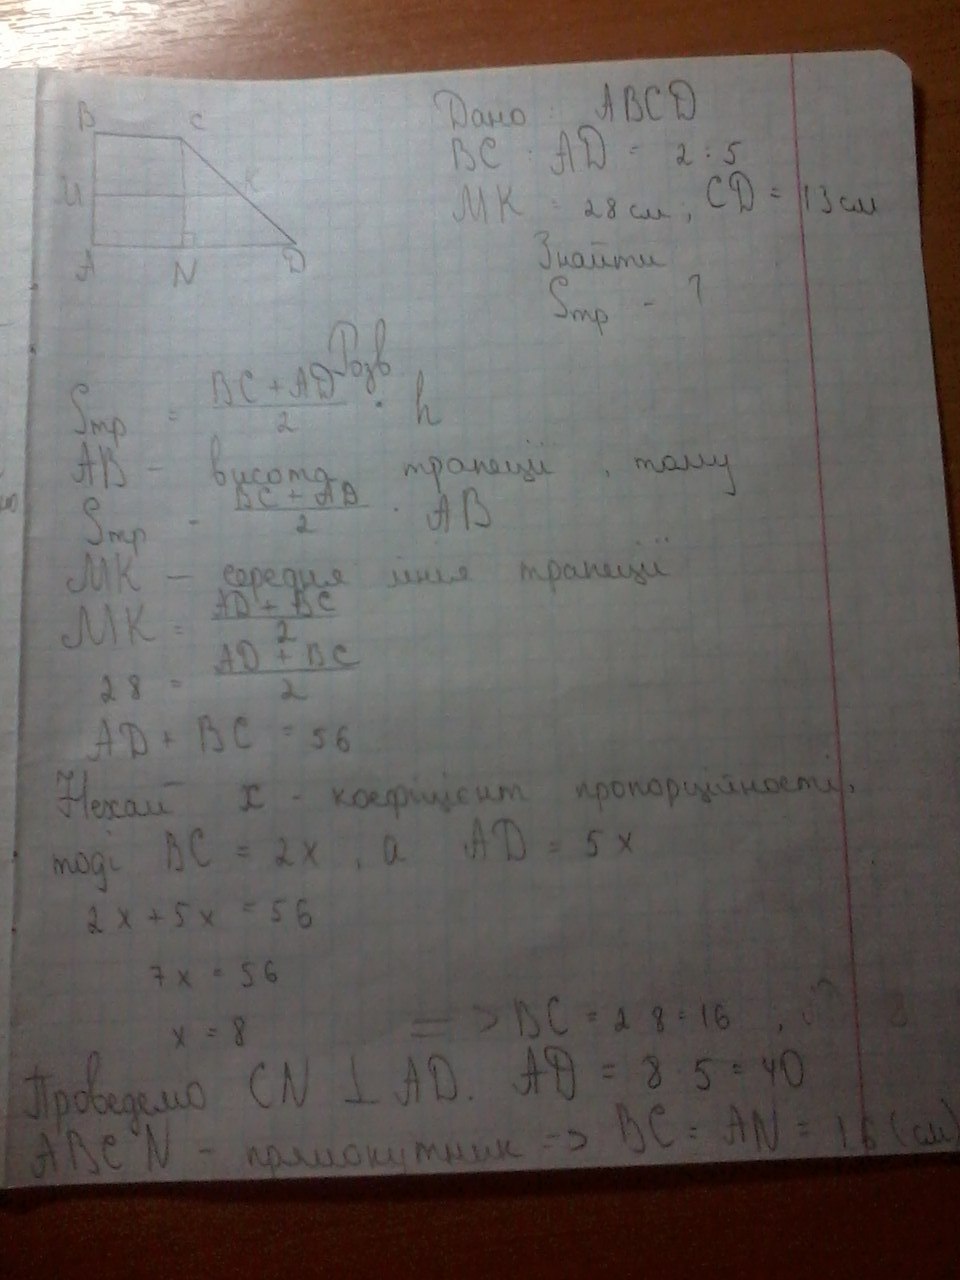 B C
M K
A N D
Дано : ABCD
BC : AD = 2 : 5
MK = 28 см ; CD = 13 см
Знайти
Sтр - ?
Розв
Sтр = BC + AD / 2 · h
AB - висота трапеції , тому
Sтр = BC + AD / 2 · AB
MK - середня лінія трапеції
MK = AD + BC / 2
28 = AD + BC / 2
AD + BC = 56
Нехай x - коефіцієнт пропорційності,
тоді BC = 2x , а AD = 5x
2x + 5x = 56
7x = 56
x = 8 => BC = 2 8 = 16 ,
Проведемо CN ⊥ AD. AD = 8 · 5 = 40
ABCN - прямокутник => BC = AN = 16 (см)